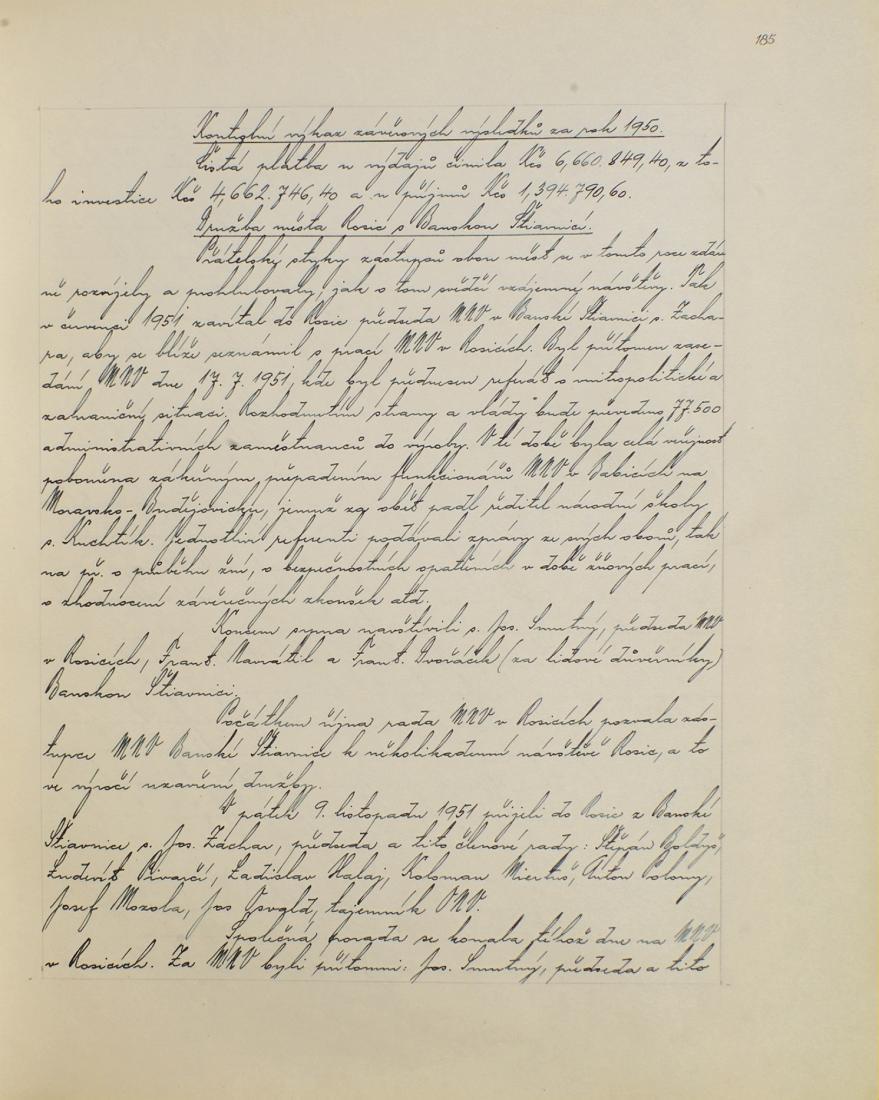 185
Kontrolní výkaz závěrových výsledků za rok 1950.
Čistá platba u výdajů činila Kčs 6,660.849,40, z to-
ho investice Kčs 4,662.746,40 a u příjmů Kčs 1,394.790,60.
Družba města Rosic s Banskou Štiavnicí.
Přátelský styky zástupců obou měst se v tomto roce zdár
ně rozvíjely a prohlubovaly, jak o tom svědčí vzájemné návštěvy. Tak
v červenci 1951 zavítal do Rosic předseda MNV v Banské Štiavnici s. Zacha-
ra, aby se blíže seznámil s prací MNV v Rosicích. Byl přítomen zase-
dání MNV dne 17. 7. 1951, kde byl přednesen referát o vnitropolitické a
zahraniční situaci. Rozhodnutím strany a vlády bude převedeno 77.500
administrativních zaměstnanců do výroby. V té době byla celá veřejnost
pobouřena zákeřným přepadením funkcionářů MNV v Babicích na
Moravsko-Budějovicku, jemuž za oběť padl ředitel národní školy
s. Kuchtík. Jednotliví referenti podávali zprávy ze svých oborů, tak
na př. o průběhu žní, o bezpečnostních opatřeních v době žňových prací,
o zhodnocení závěrečných zkoušek atd.
Koncem srpna navštívili s. Jos. Smutný, předseda MNV
v Rosicích, Frant. Navrátil a Frant. Dvořáček (za lidové důvěrníky)
Banskou Štiavnici.
Počátkem října rada MNV v Rosicích pozvala zás-
tupce MNV Banské Štiavnice k několikadenní návštěvě Rosic, a to
ve výročí uzavření družby.
V pátek 9. listopadu 1951 přijeli do Rosic z Banské
Štiavnice s. Jos. Zachar, předseda a tito členové rady: Štěpán Boldyš,
Ludevít Pivarčí, Ladislav Halaj, Koloman Miertuš, Anton Polony,
Josef Mozola, Jos Osvald, tajemník ONV.
Společná porada se konala téhož dne na MNV
v Rosicích. Za MNV byli přítomni: Jos. Smutný, předseda a tito